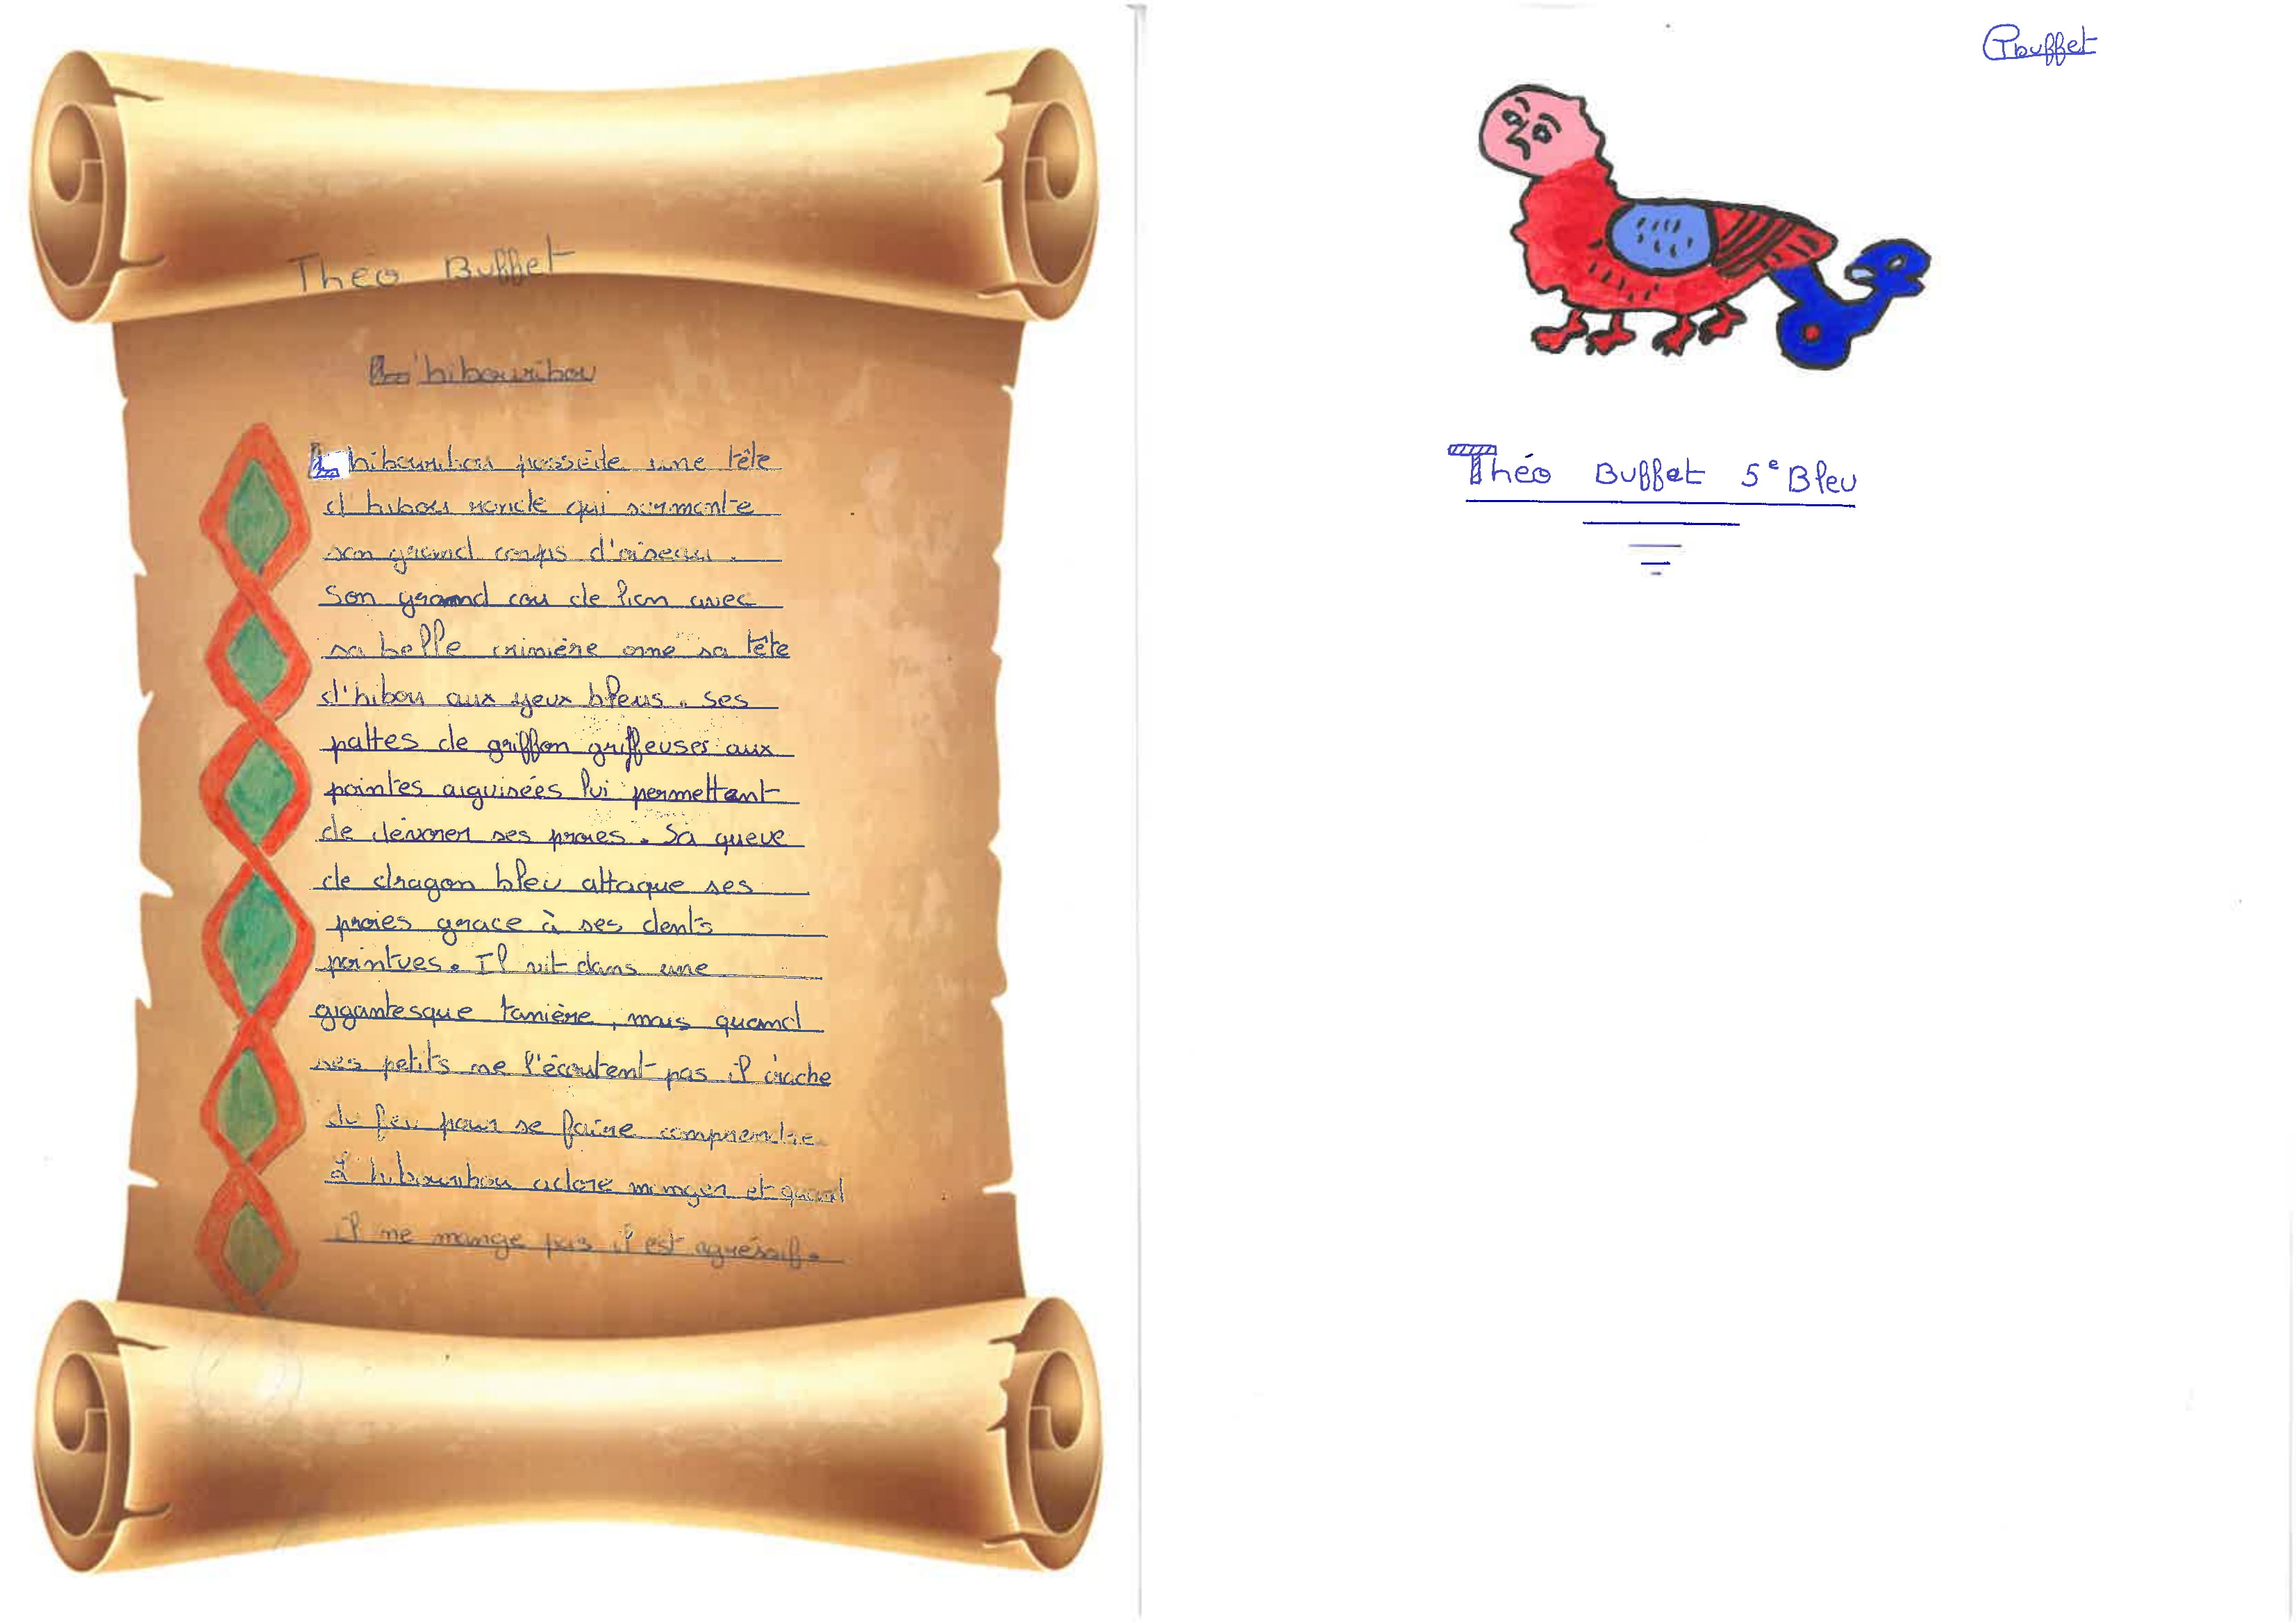 Théo Buffet
L'hibouribou
L'hibouribou possède une tête
d'hibou ronde qui surmonte
son grand corps d'oiseau.
Son grand cou de lion avec
sa belle crinière orne sa tête
d'hibou aux yeux bleus. ses
pattes de griffon griffeuses aux
pointes aiguisées lui permettant
de dévorer ses proies. Sa queue
de dragon bleu attaque ses
proies grace à ses dents
pointues. Il vit dans une
gigantesque tanière, mais quand
ses petits ne l'écoutent pas il crache
du feu pour se faire comprendre
L'hibouribou adore manger et quand
il ne mange pas il est agréssif.
TBuffet
Théo Buffet 5e Bleu